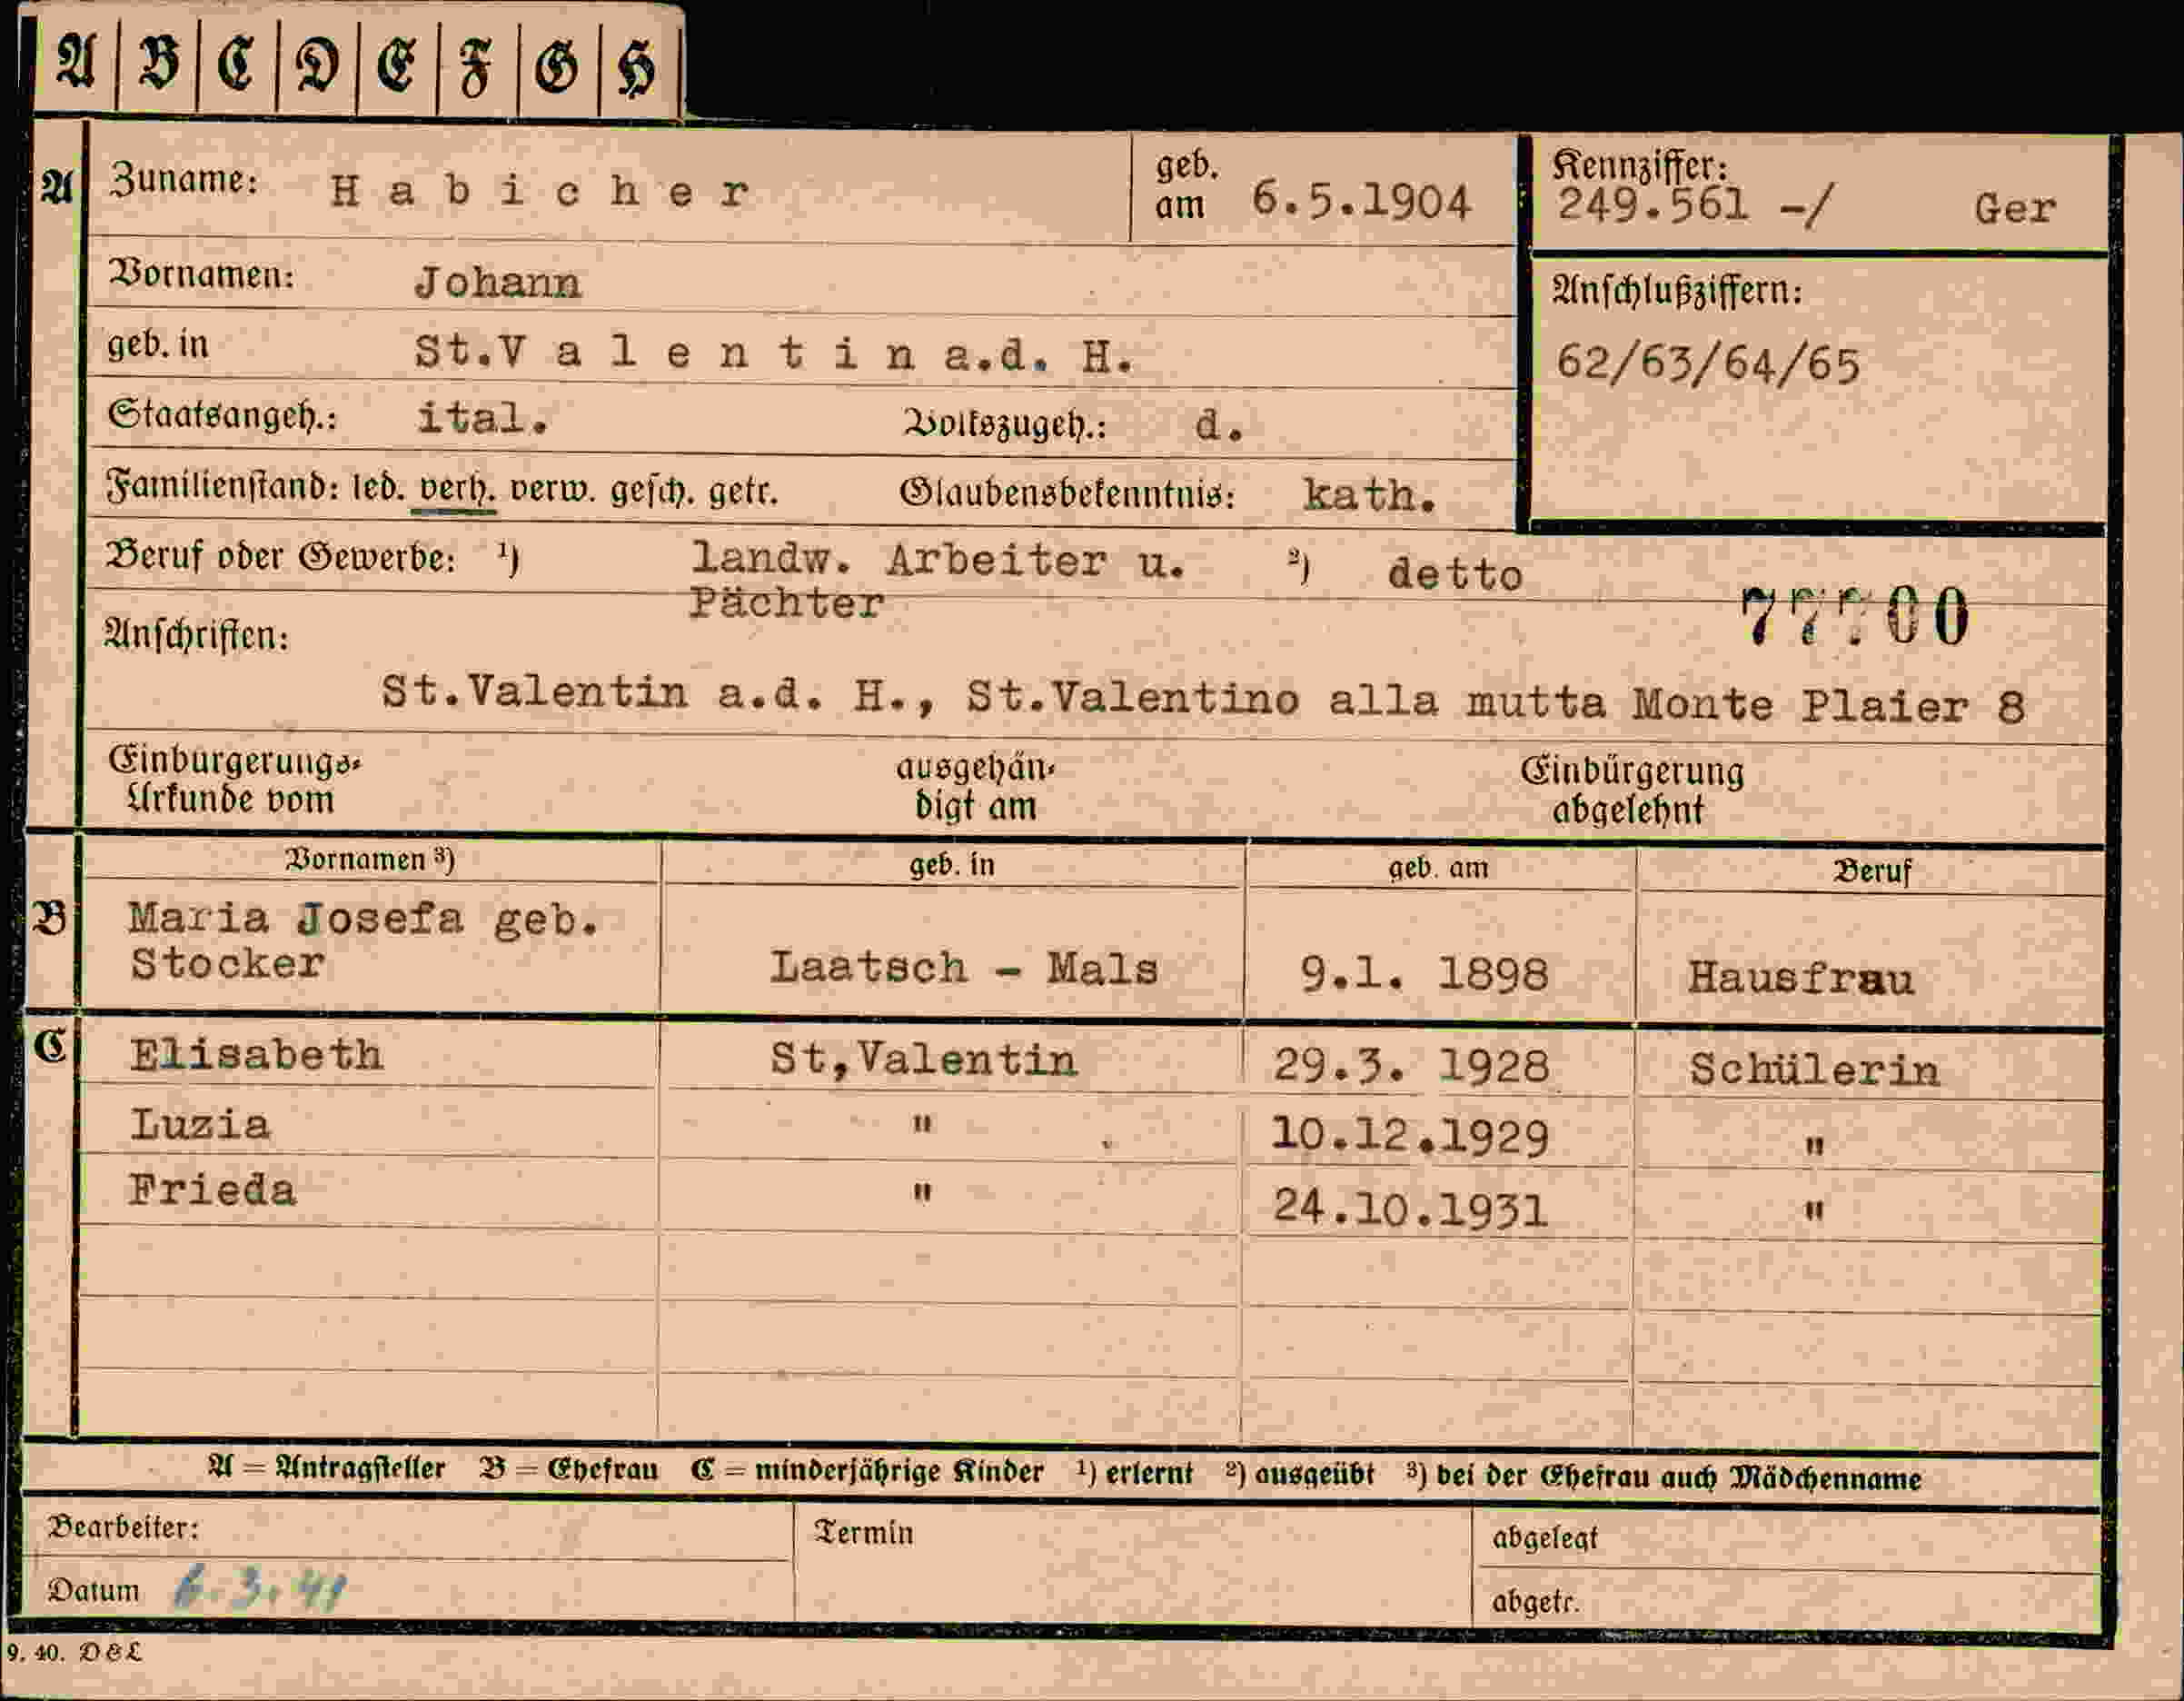 A B C D E F G H
A Zuname: Habicher geb. am 6.5.1904 Kennziffer: 249.561 -/ Ger
Vornamen: Johann Anschlußziffern:
geb. in St.Valentin a.d. H. 62/63/64/65
Staatsangeh.: ital. Volkszugeh.: d.
Familienstand: led. verh. verw. gesch. getr. Glaubensbekenntnis: kath.
Beruf oder Gewerbe: ¹) landw. Arbeiter u. ²) detto
Pächter
Anschriften:
St.Valentin a.d. H., St.Valentino alla mutta Monte Plaier 8
Einbürgerungs- ausgehän- Einbürgerung
Urkunde vom digt am abgelehnt
Vornamen ³) geb. in geb. am Beruf
B Maria Josefa geb.
Stocker Laatsch - Mals 9.1. 1898 Hausfrau
C Elisabeth St,Valentin 29.3. 1928 Schülerin
Luzia " 10.12.1929 "
Frieda " 24.10.1931 "
A = Antragsteller B = Ehefrau C = minderjährige Kinder ¹) erlernt ²) ausgeübt ³) bei der Ehefrau auch Mädchenname
Bearbeiter: Termin abgelegt
Datum 6.3.41 abgetr.
9. 40. D&L